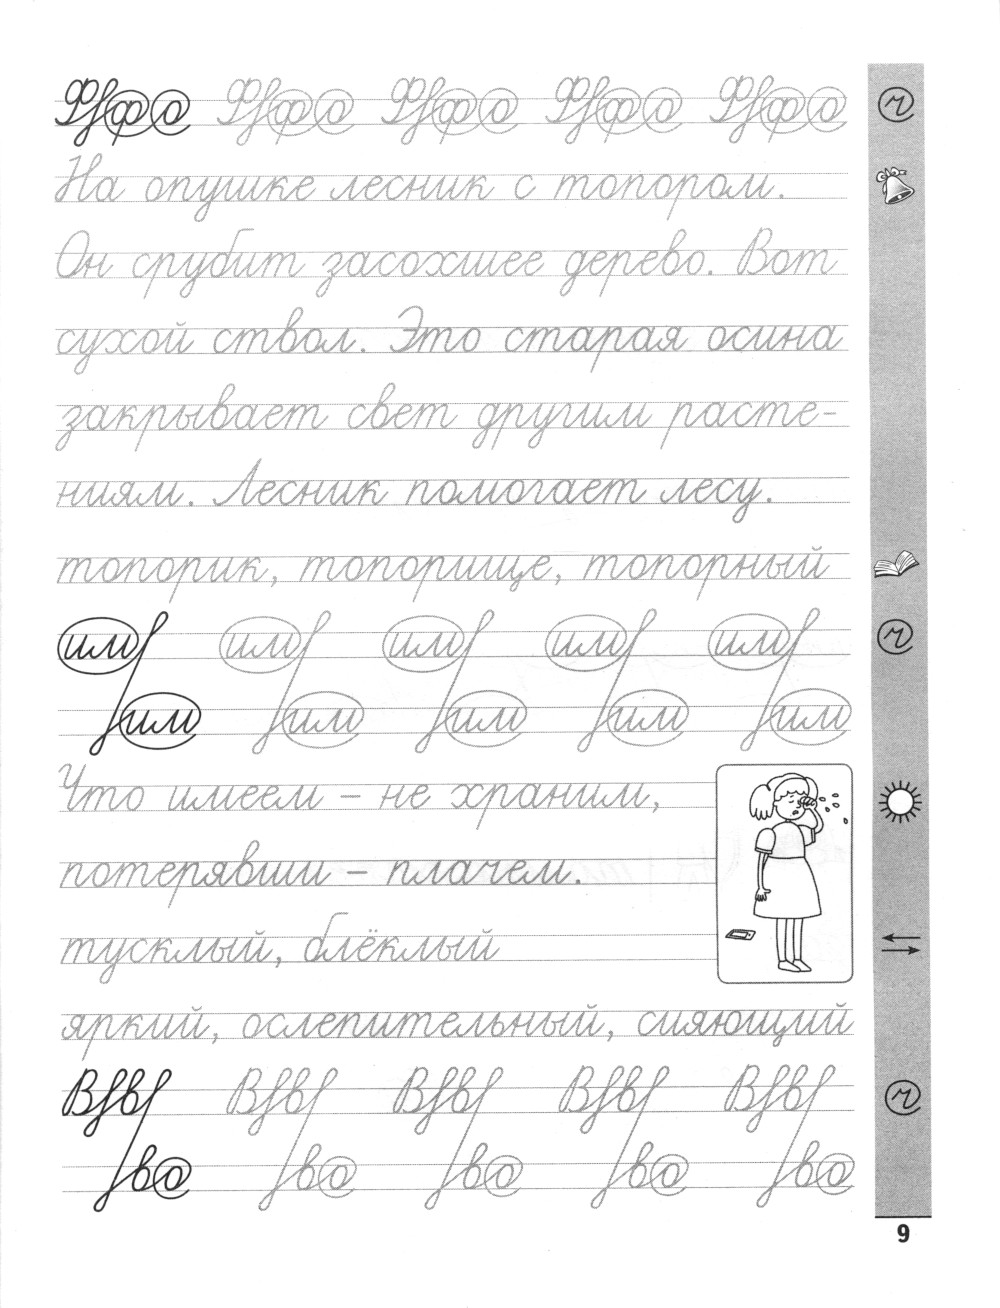 Ф ф о Ф ф о Ф ф о Ф ф о Ф ф о
На опушке лесник с топором.
Он срубит засохшее дерево. Вот
сухой ствол. Это старая осина
закрывает свет другим расте-
ниям. Лесник помогает лесу.
топорик, топорище, топорный
им им им им им
им им им им им
Что имеем – не храним,
потерявши – плачем.
тусклый, блёклый
яркий, ослепительный, сияющий
В в В в В в В в В в
во во во во во
9